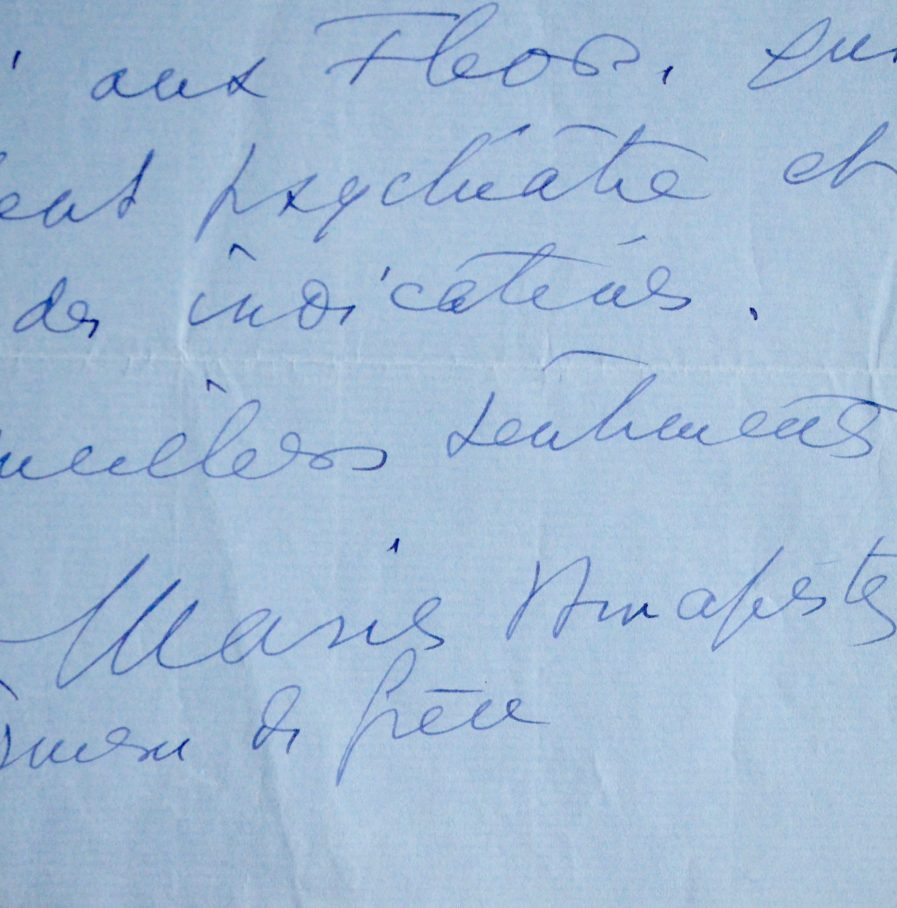 aux Fleos, qui
psychiatre et
des indications.
meilleurs sentiments
Marie Bonaparte
Princesse de Grèce